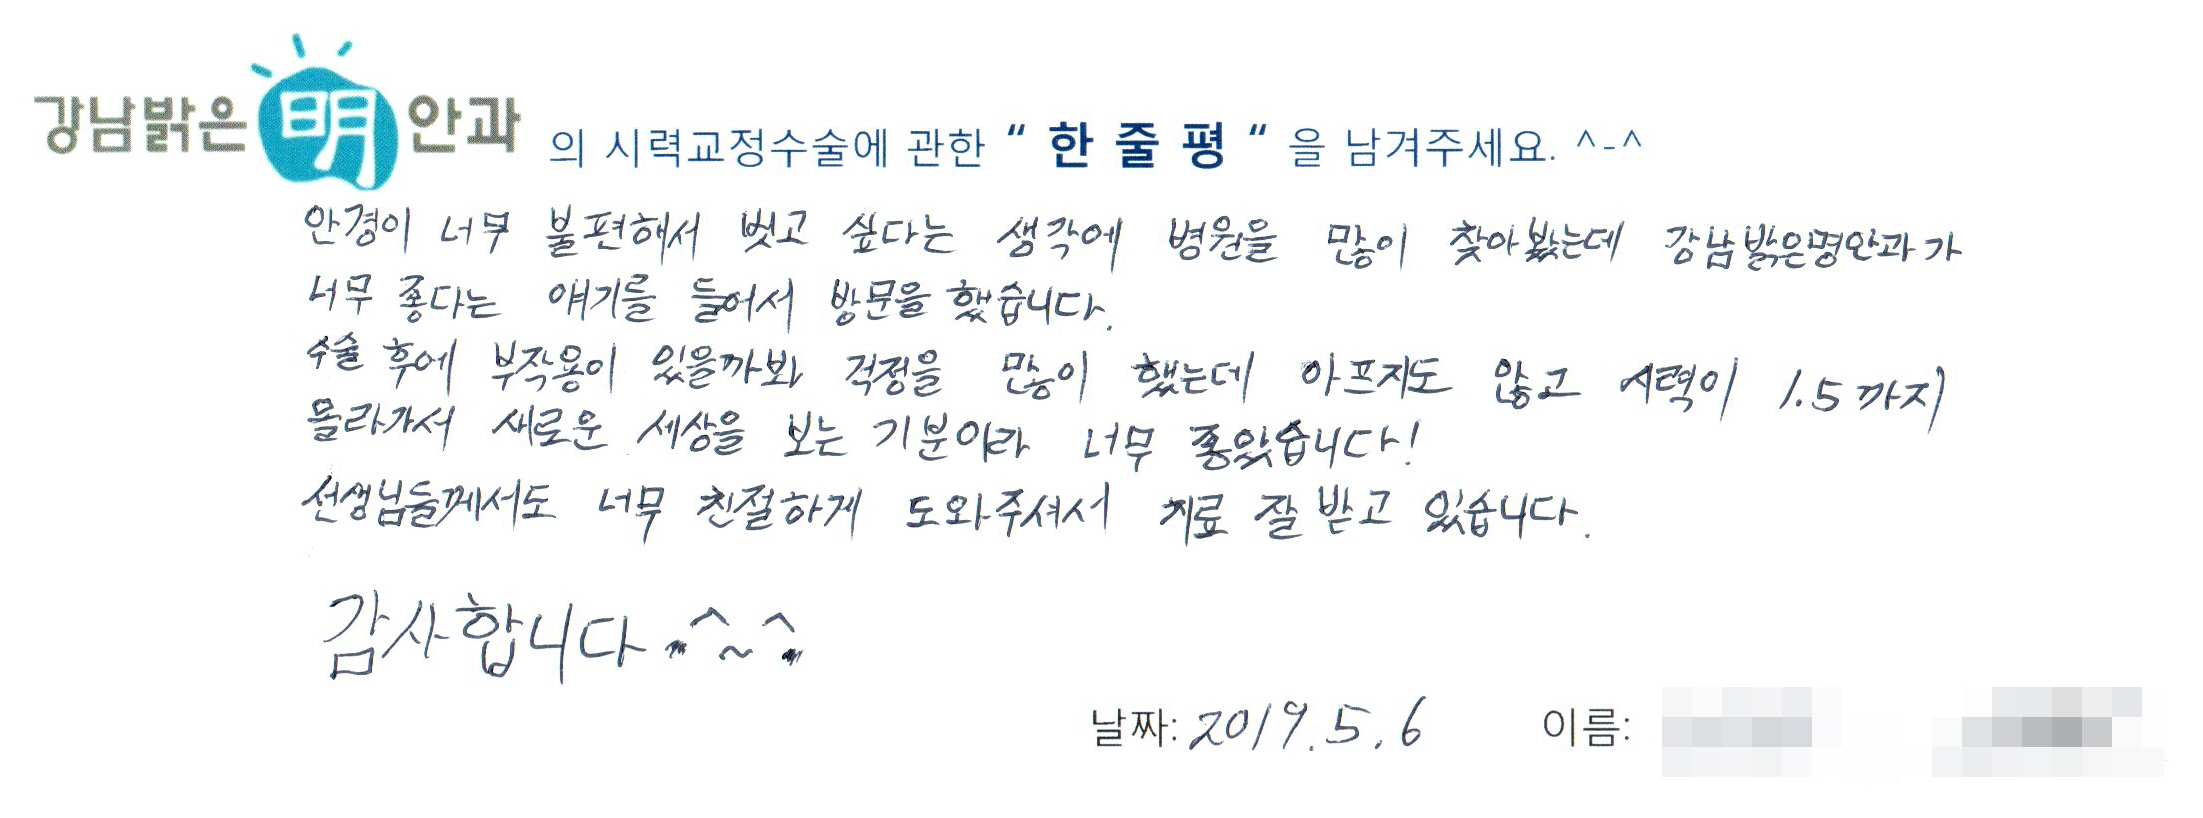 강남밝은明안과 의 시력교정수술에 관한 “ 한 줄 평 “ 을 남겨주세요. ^-^
안경이 너무 불편해서 벗고 싶다는 생각에 병원을 많이 찾아봤는데 강남밝은명안과가
너무 좋다는 얘기를 들어서 방문을 했습니다.
수술 후에 부작용이 있을까봐 걱정을 많이 했는데 아프지도 않고 시력이 1.5까지
올라가서 새로운 세상을 보는 기분이라 너무 좋았습니다!
선생님들께서도 너무 친절하게 도와주셔서 치료 잘 받고 있습니다.
감사합니다 ^~^
날짜: 2019.5.6 이름: